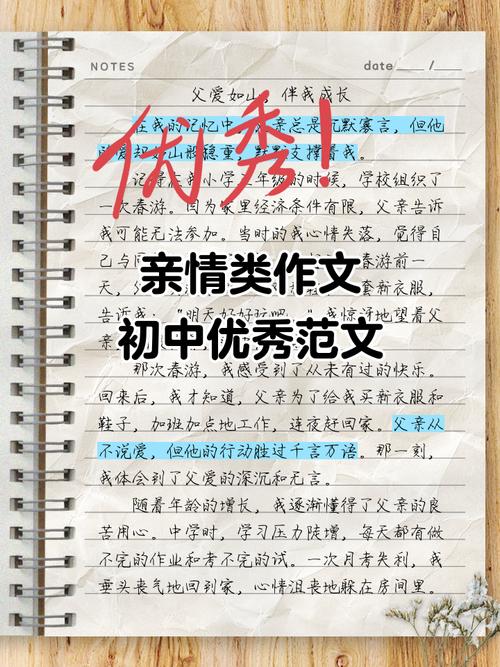 NOTES date ___ / ___
父爱如山 伴我成长
在我的记忆中 亲总是沉默寡言，但他
爱却 山般稳重 默默支撑着我。
优秀！
记得在我小学 年级的时候，学校组织了
一次春游。因为家里经济条件有限，父亲告诉
我可能无法参加。当时的我心情失落，觉得自
己与同 春游前一
亲情类作文
天， 套新衣服，
告诉我：“明天好好玩吧。” 我惊讶地望着父
初中优秀范文
亲
那次春游，我感受到了从未有过的快乐。
回来后，我才知道，父亲为了给我买新衣服和
鞋子，加班加点地工作，连夜赶回家。父亲从
不说爱，但他的行动胜过千言万语。那一刻，
我体会到了父爱的深沉和无言。
随着年龄的增长，我逐渐懂得了父亲的良
苦用心。中学时，学习压力陡增，每天都有做
不完的作业和考不完的试。一次月考失利，我
垂头丧气地回到家，心情沮丧地躲在房间里。